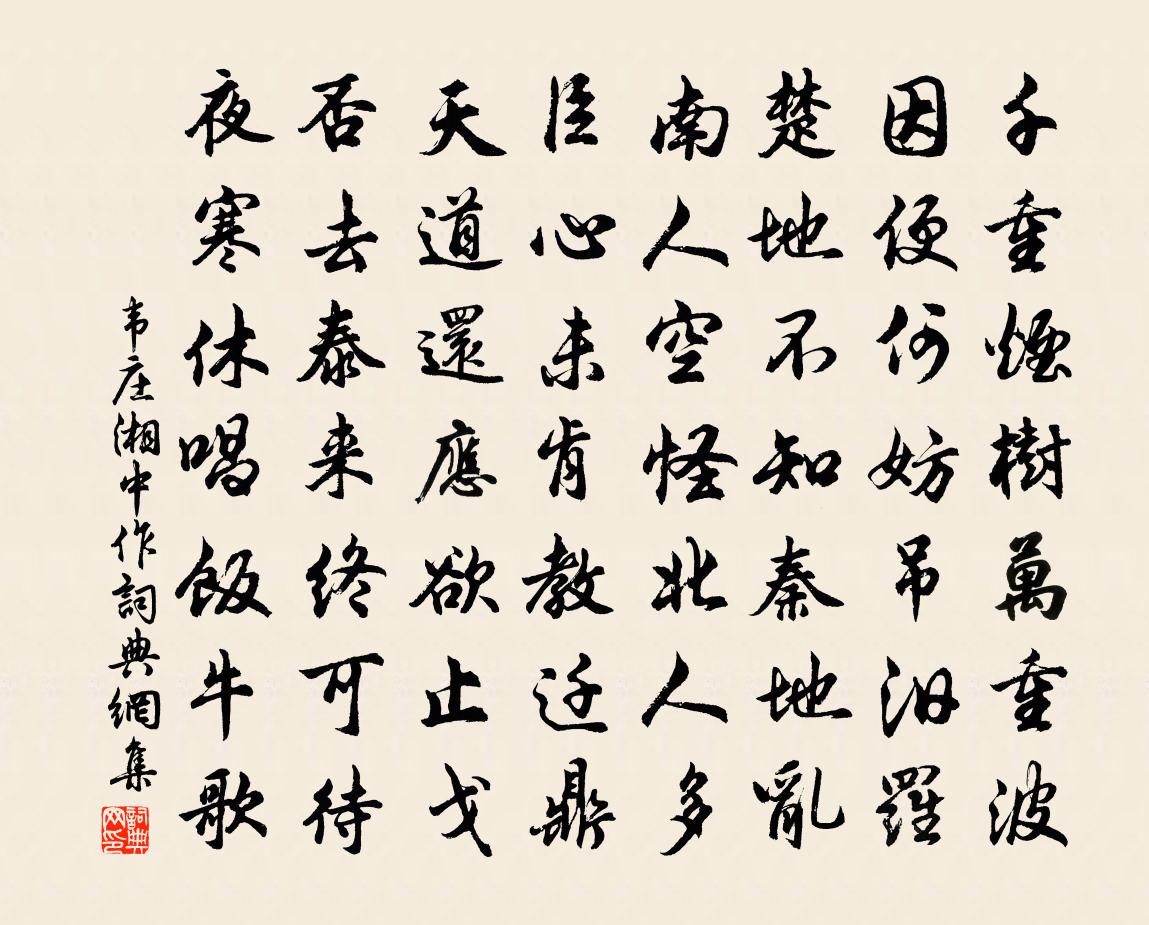 千重煙樹萬重波
因便何妨吊汨羅
楚地不知秦地亂
南人空怪北人多
臣心未肯教迁鼎
天道還應欲止戈
否去泰来终可待
夜寒休唱飯牛歌
韦庄湘中作詞典網集
詞典网印